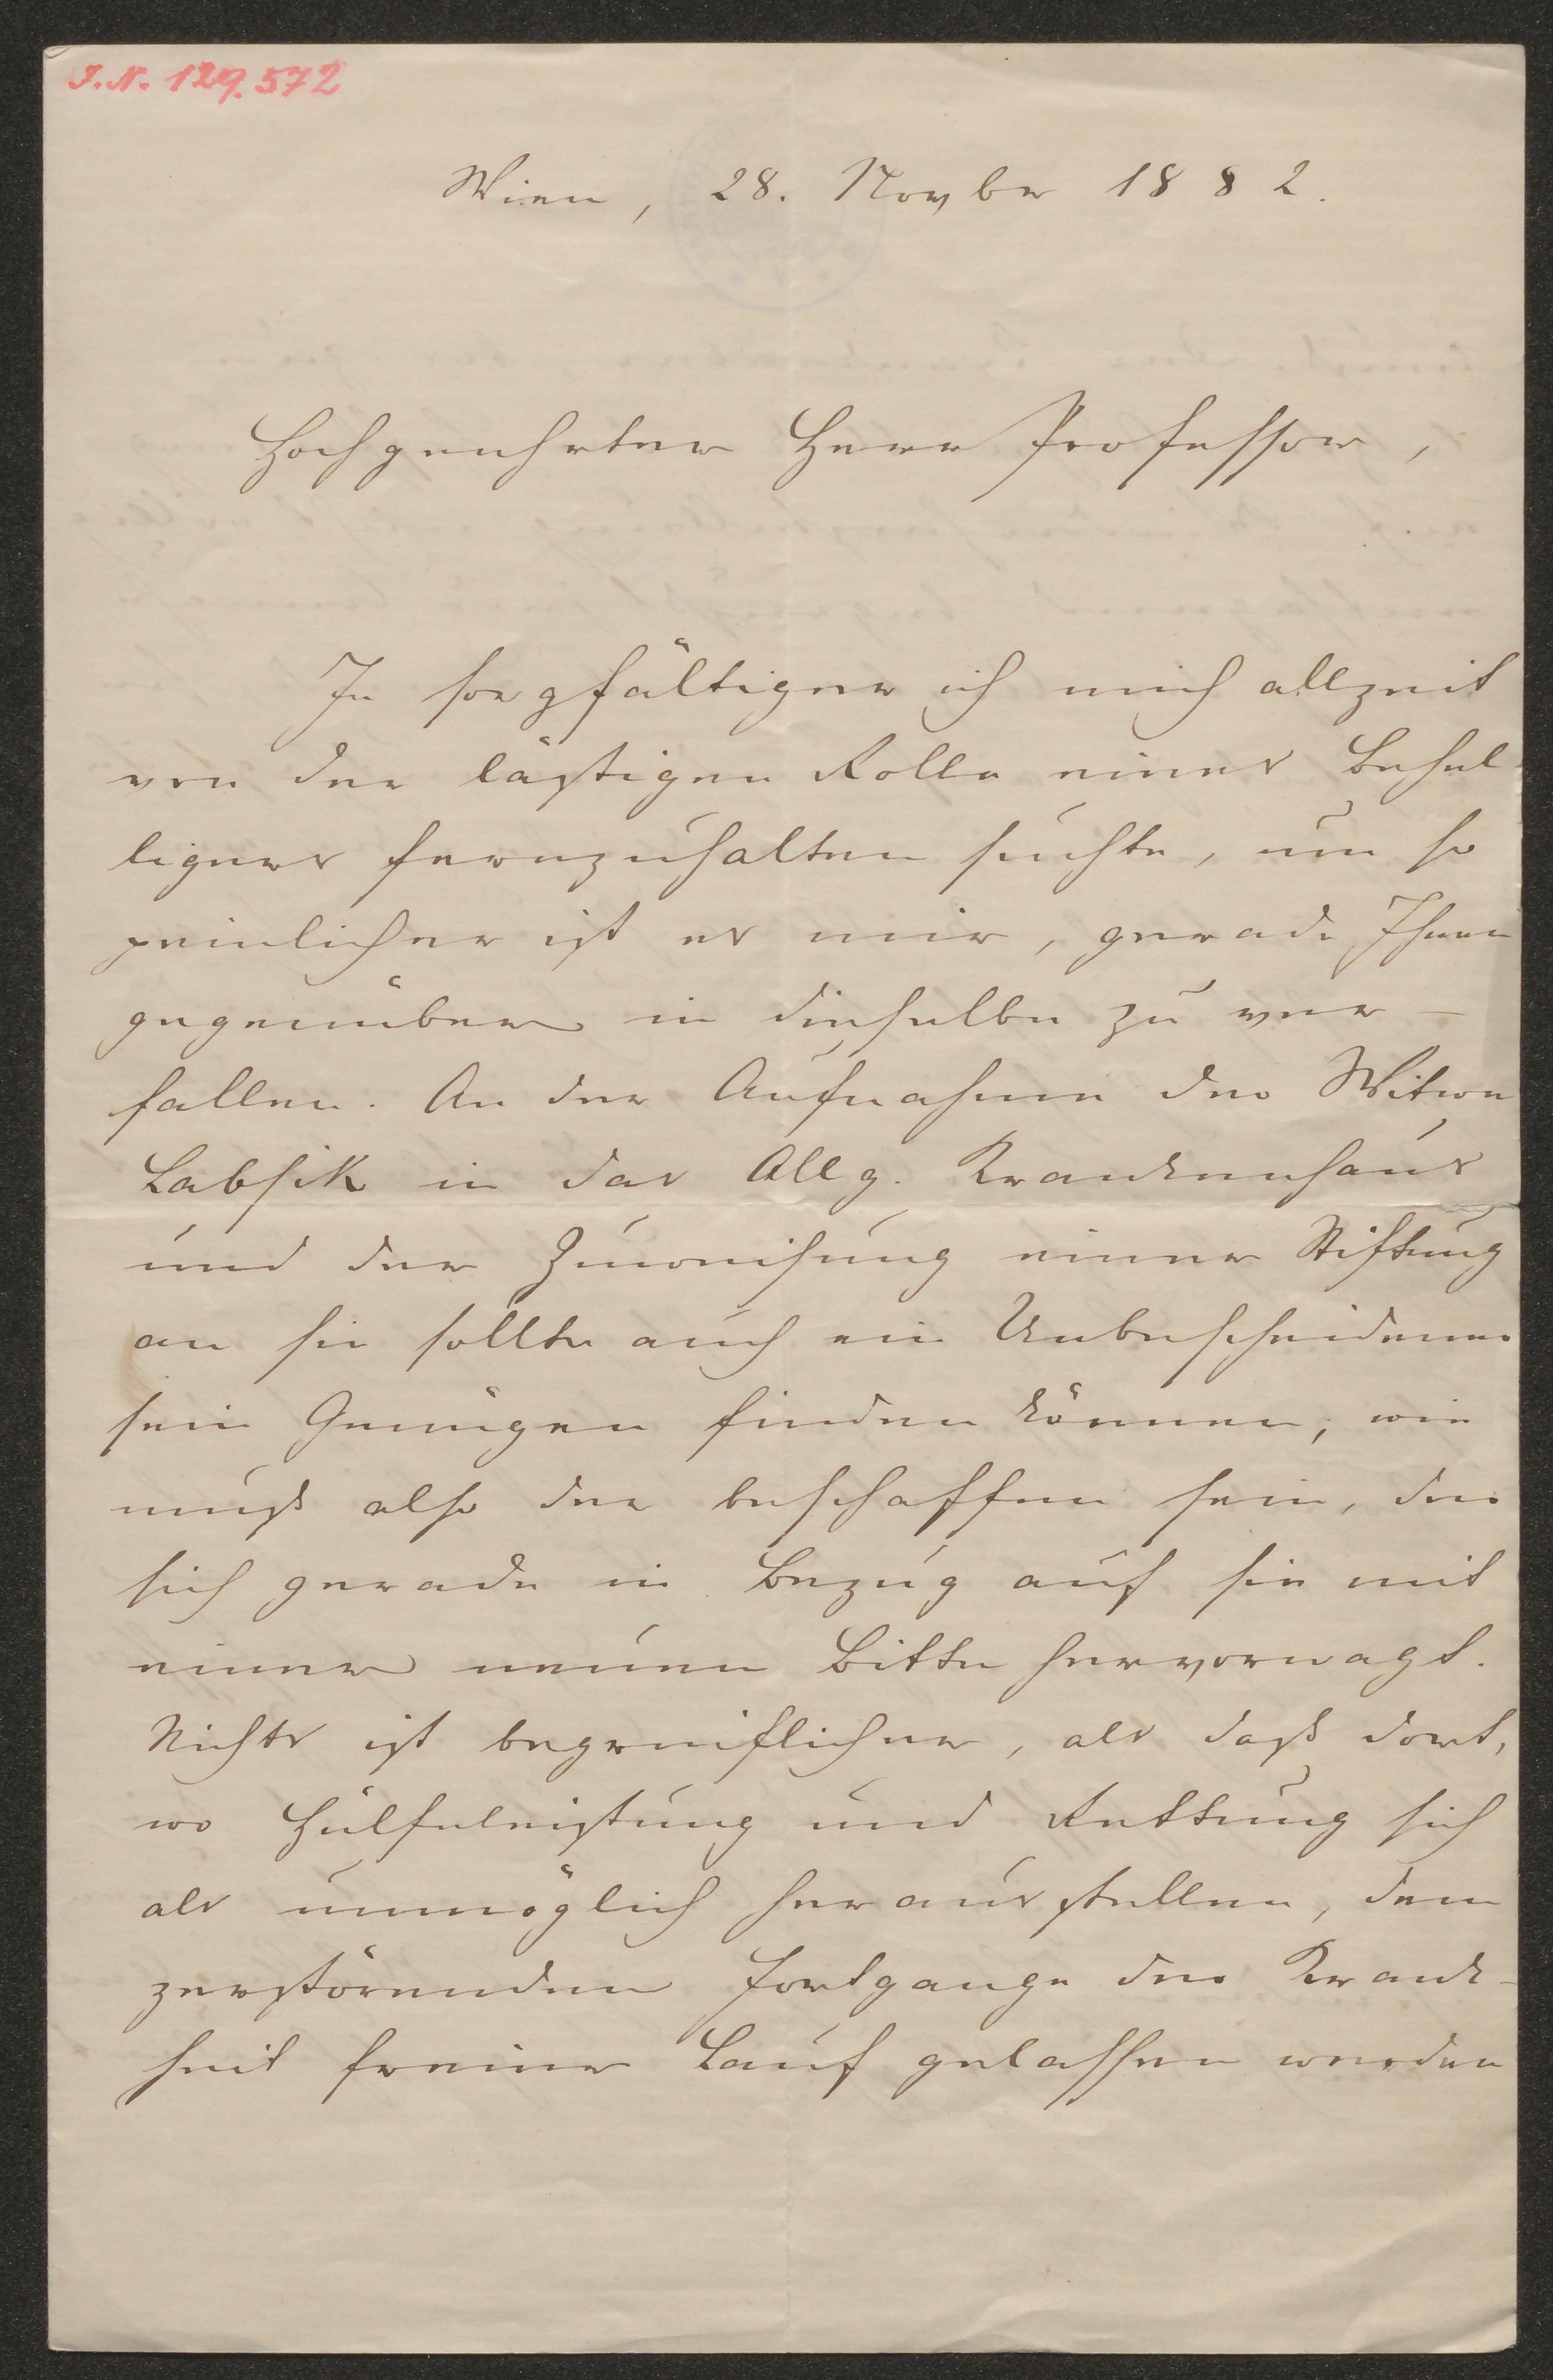 I. N. 129.572
Wien, 28. Novbr 1882.
Hochgeehrter Herr Professor,
Je sorgfältiger ich mich allzeit
von der lästigen Rolle eines Behel-
ligers fernzuhalten suchte, um so
peinlicher ist es mir, gerade Ihnen
gegenüber in dieselbe zu ver-
fallen. An der Aufnahme der Witwe
Labsik in das Allg. Krankenhaus
und der Zuweisung einer Stiftung
an sie sollte auch ein Unbescheidener
sein Genügen finden können; wie
muß also der beschaffen sein, der
sich gerade in Bezug auf sie mit
einer neuen Bitte hervorwagt.
Nichts ist begreiflicher, als daß dort,
wo Hülfeleistung und Rettung sich
als unmöglich herausstellen, dem
zerstörenden Fortgange der Krank-
heit freier Lauf gelassen werden